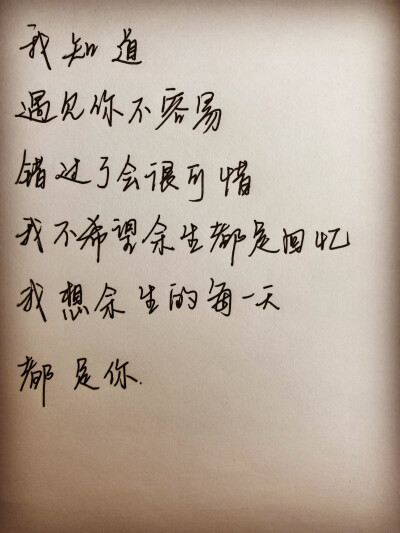 我知道
遇见你不容易
错过了会很可惜
我不希望余生都是回忆
我想余生的每一天
都是你.